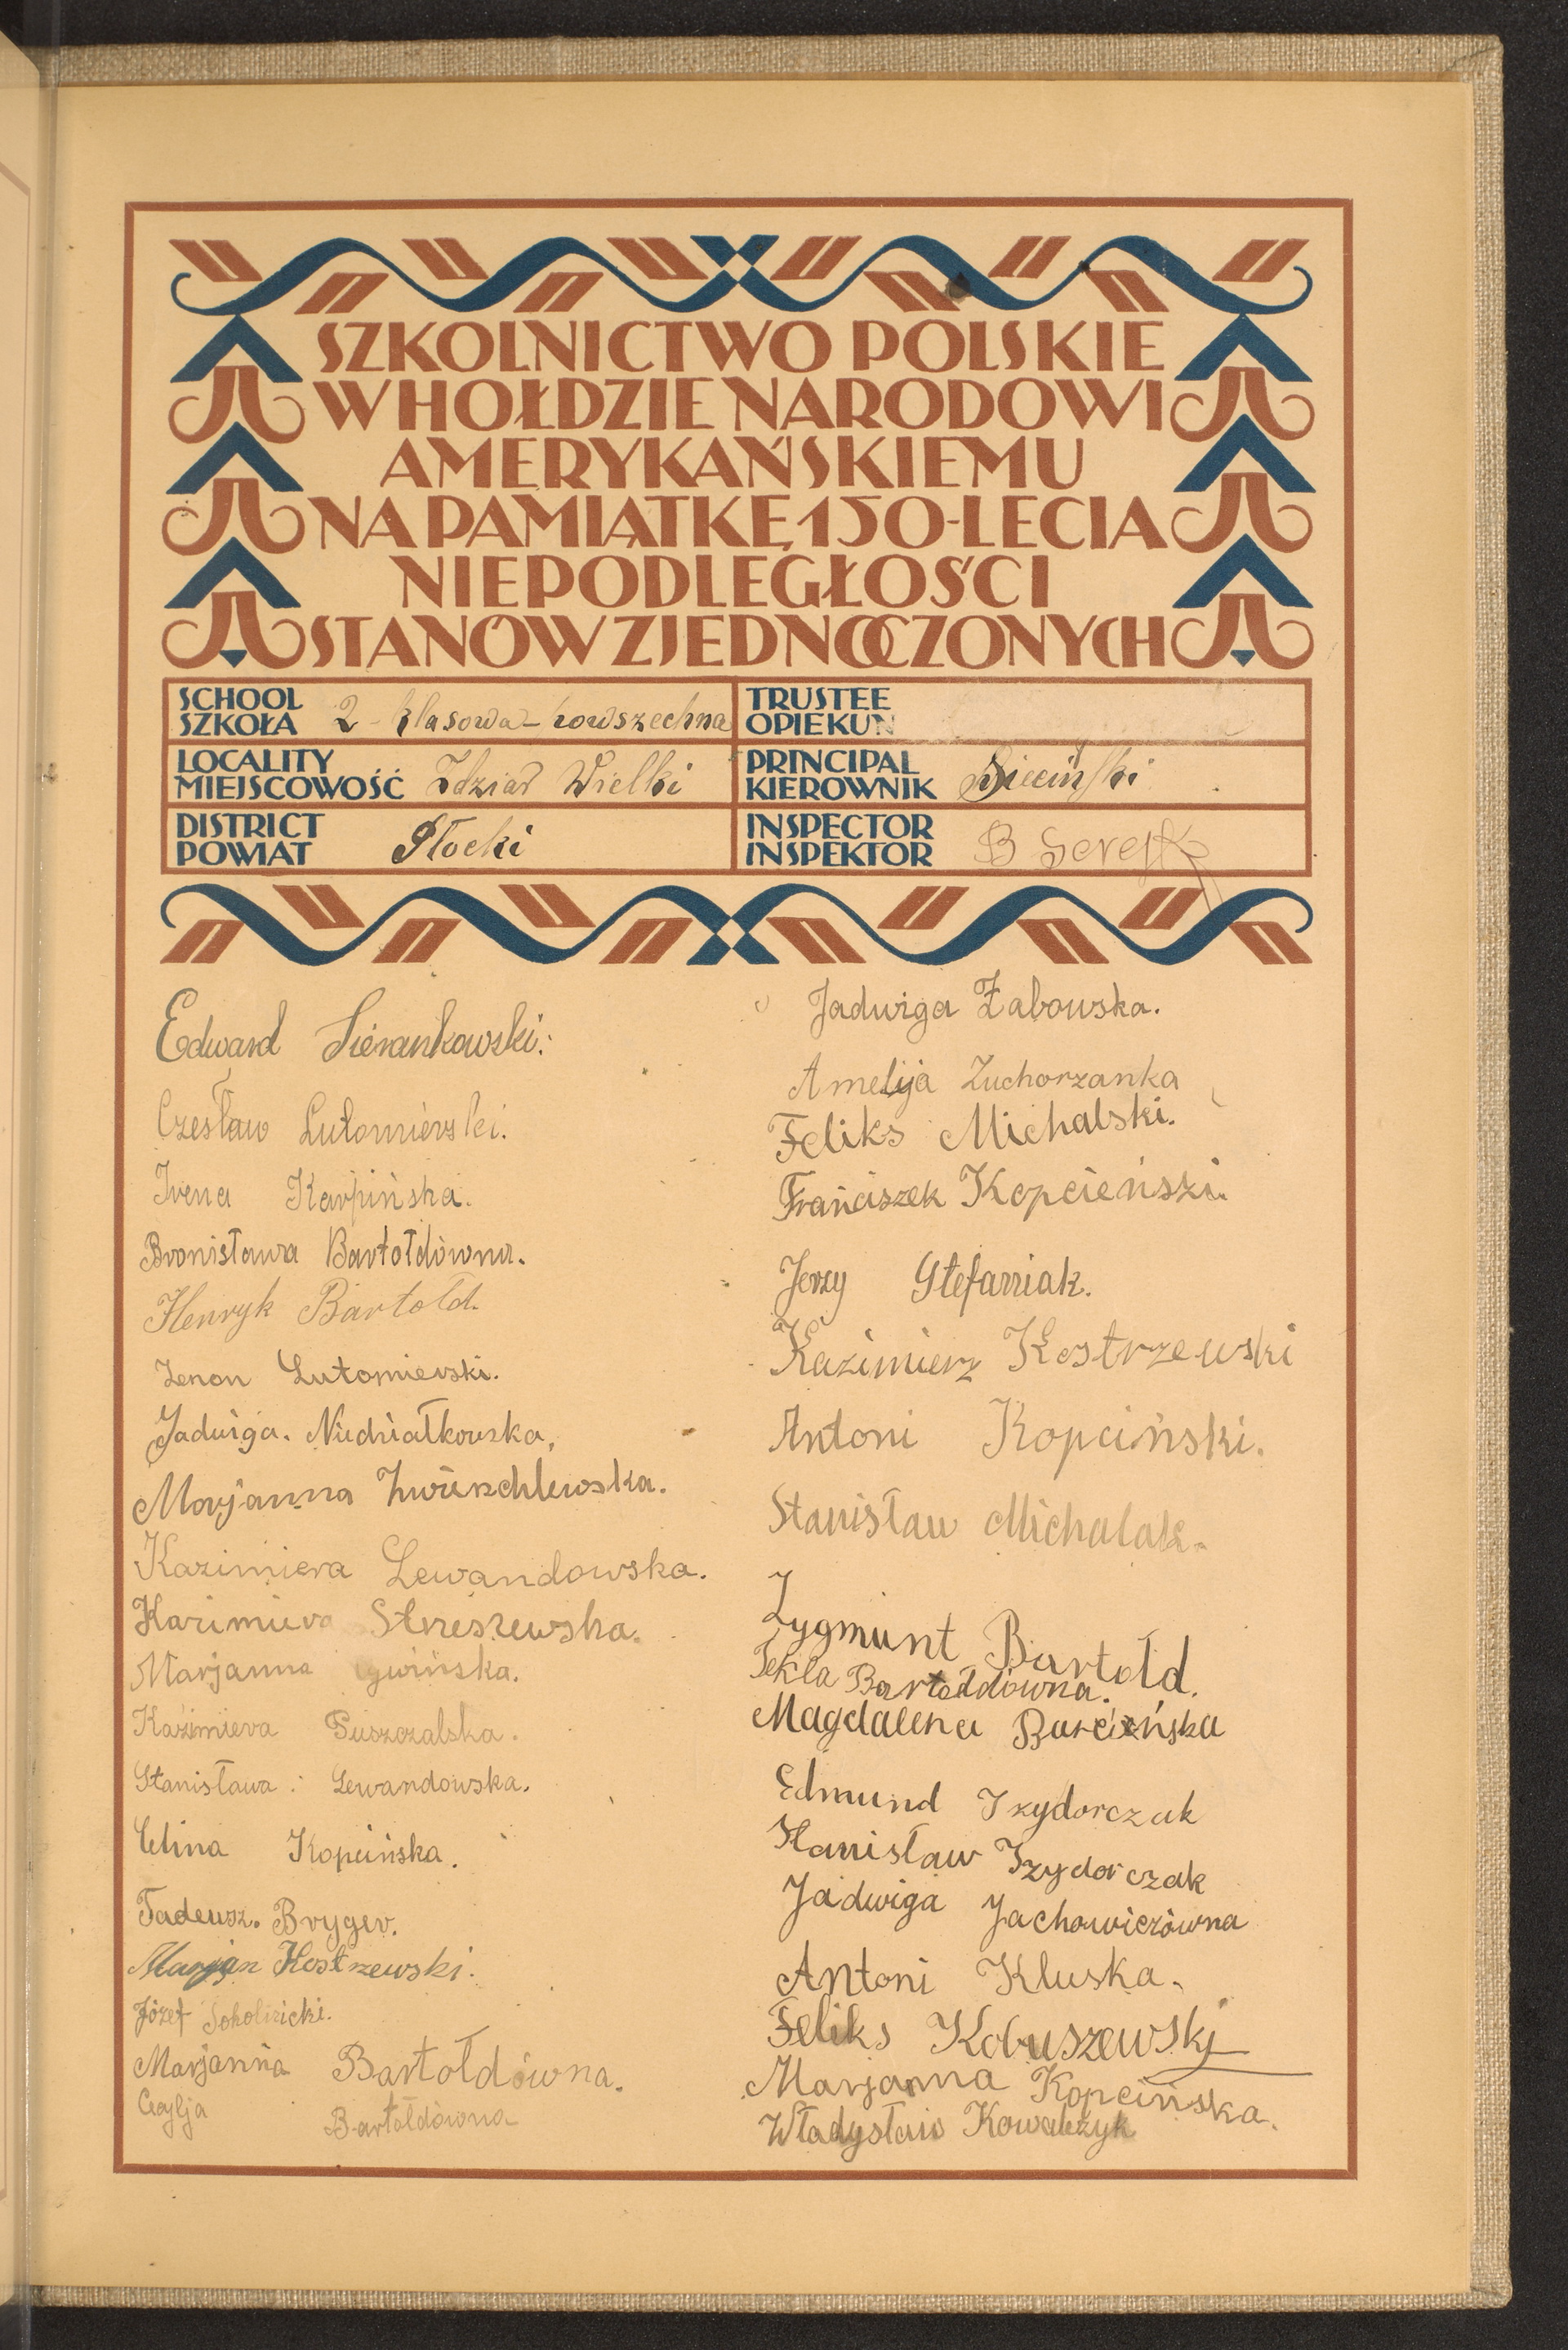 SZKOLNICTWO POLSKIE
W HOŁDZIE NARODOWI
AMERYKAŃSKIEMU
NA PAMIĄTKĘ 150-LECIA
NIEPODLEGŁOŚCI
STANÓW ZJEDNOCZONYCH
SCHOOL
SZKOŁA 2-klasowa-powszechna
TRUSTEE
OPIEKUN
LOCALITY
MIEJSCOWOŚĆ Zdziar Wielki
PRINCIPAL
KIEROWNIK Sieciński
DISTRICT
POWIAT Płocki
INSPECTOR
INSPEKTOR B
Edward Sierankowski.
Czesław Lutomierski.
Irena Karpińska.
Bronisława Bartołdówna.
Henryk Bartołd.
Zenon Lutomierski.
Jadwiga. Niedziałkowska,
Marjanna
Kazimiera Lewandowska.
Kazimiera Streszewska.
Marjanna
Kazimiera Puszczalska.
Stanisława. Lewandowska.
Celina Kopcińska.
Tadeusz. Bryger.
Marjan Kostrzewski.
Józef Sokolnicki.
Marjanna Bartołdówna.
Cecylja Bartołdówna
Jadwiga Żabowska.
Amelija Zuchorzanka
Feliks Michalski.
Franciszek Kopcieński.
Jerzy Stefaniak.
Kazimierz Kostrzewski
Antoni Kopciński.
Stanisław Michalak.
Zygmunt Bartołd.
Tekla Bartołdówna.
Magdalena Burcińska
Edmund Izydorczak
Stanisław Izydorczak
Jadwiga Jachowiczówna
Antoni Kluska.
Feliks Kobuszewski
Marjanna Kopcińska.
Władysław Kowalczyk